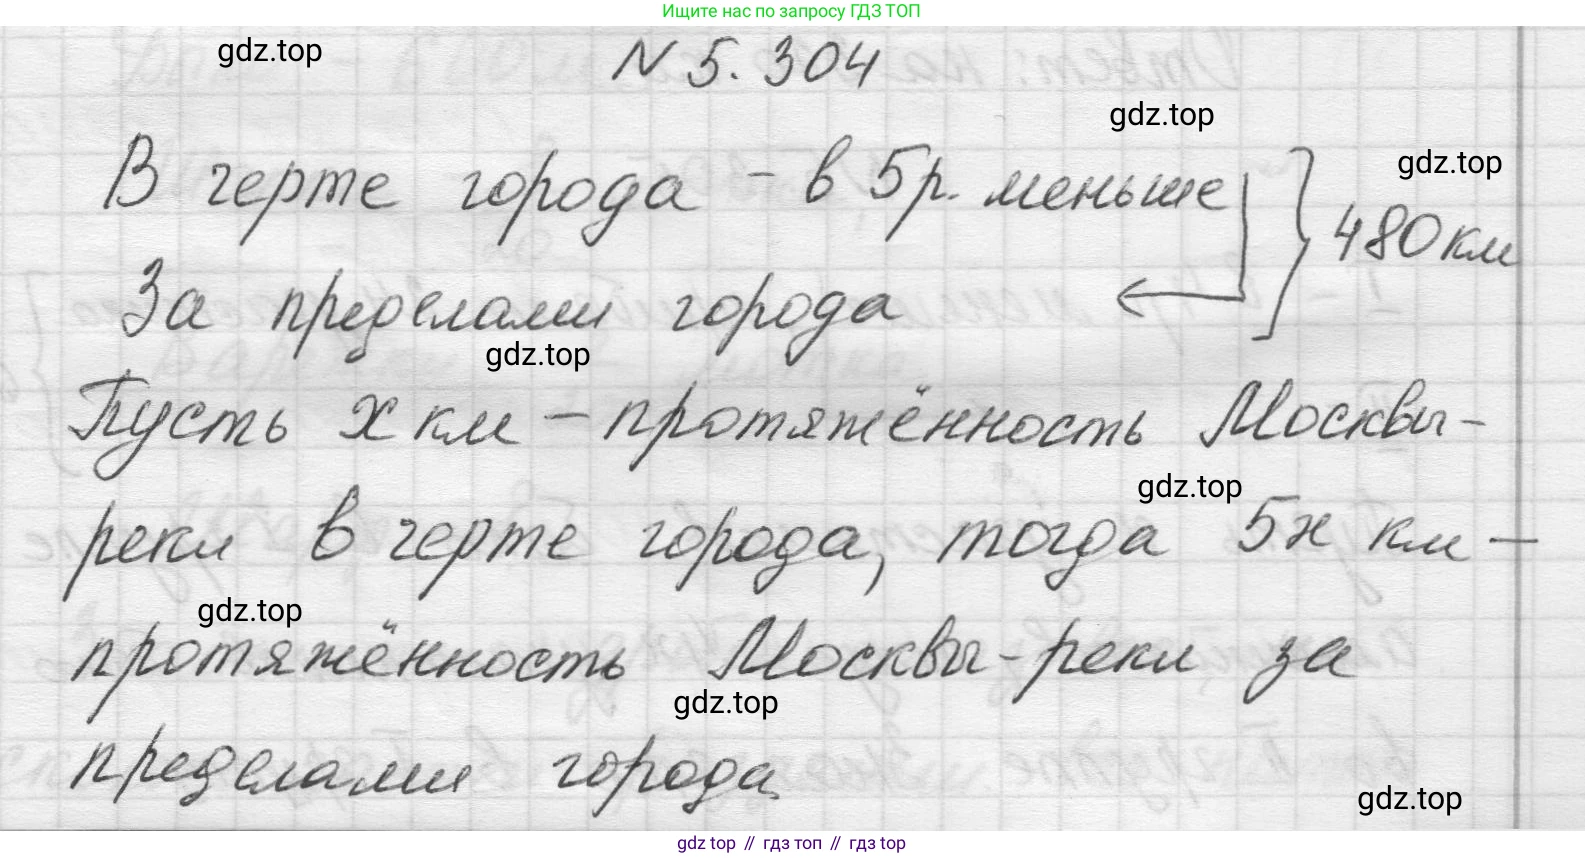 Ищите нас по запросу ГДЗ ТОП
gdz.top
N 5. 304
gdz.top
В черте города - в 5 р. меньше
gdz.top
480 км
За пределами города
gdz.top
Пусть х км - протяжённость Москвы-
gdz.top
реки в черте города, тогда 5х км -
gdz.top
протяжённость Москвы-реки за
gdz.top
пределами города
gdz.top
gdz top // гдз топ // gdz top